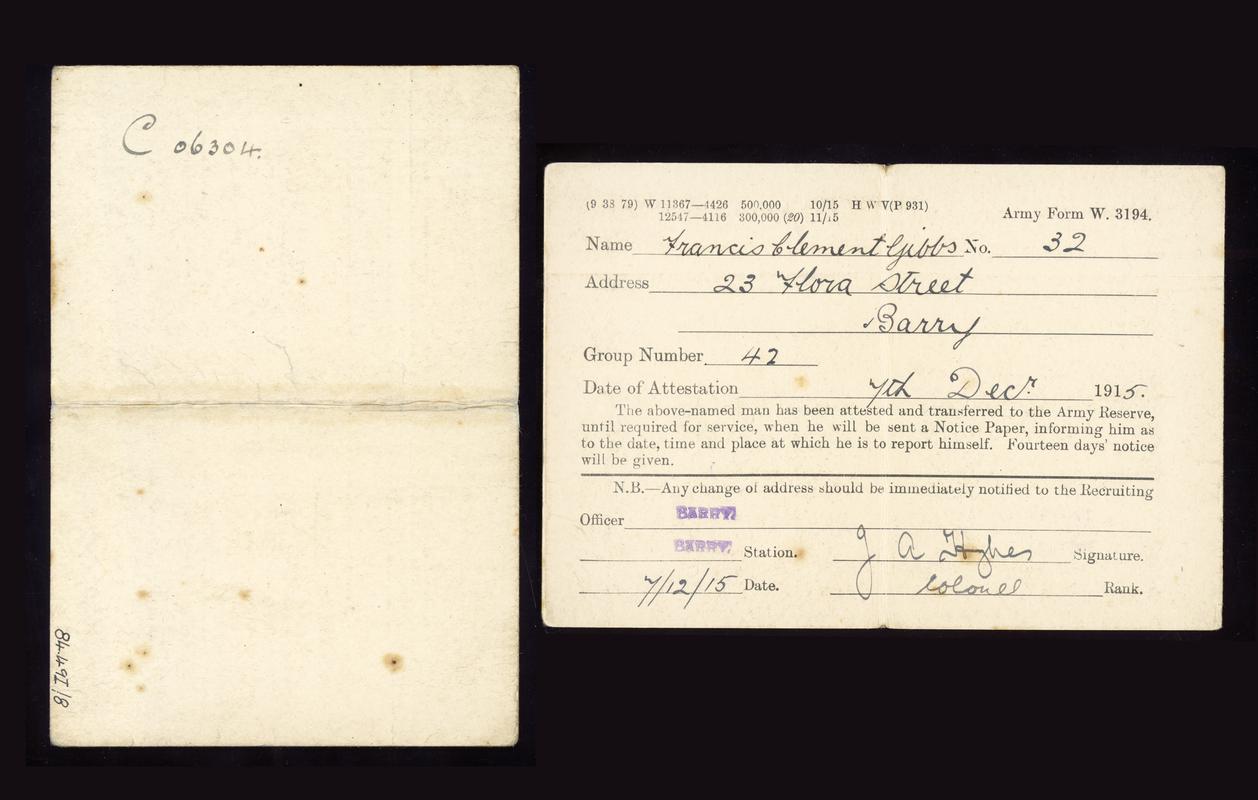 C 06304.
84.49I/8
(9 38 79) W 11367—4426 500,000 10/15 H W V(P 931)
12547—4116 300,000 (20) 11/15
Army Form W. 3194.
Name Francis Clement Gibbs No. 32
Address 23 Flora Street
Barry
Group Number 42
Date of Attestation 7th Decr. 1915.
The above-named man has been attested and transferred to the Army Reserve,
until required for service, when he will be sent a Notice Paper, informing him as
to the date, time and place at which he is to report himself. Fourteen days' notice
will be given.
N.B.—Any change of address should be immediately notified to the Recruiting
Officer BARRY.
BARRY. Station. J A Hughes Signature.
7/12/15 Date. Colonel Rank.